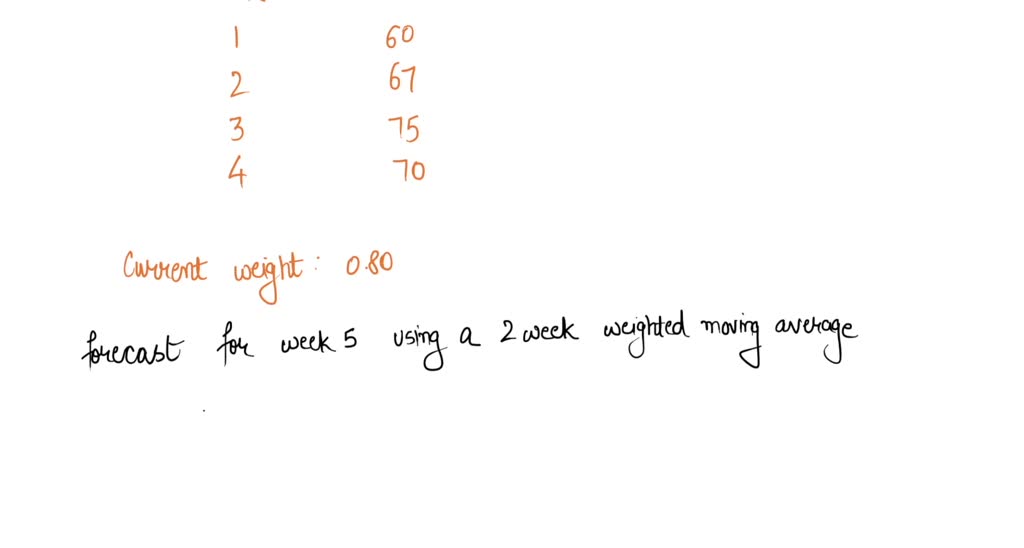 1 60
2 67
3 75
4 70
Current weight: 0.80
forecast for week 5 using a 2 week weighted moving average